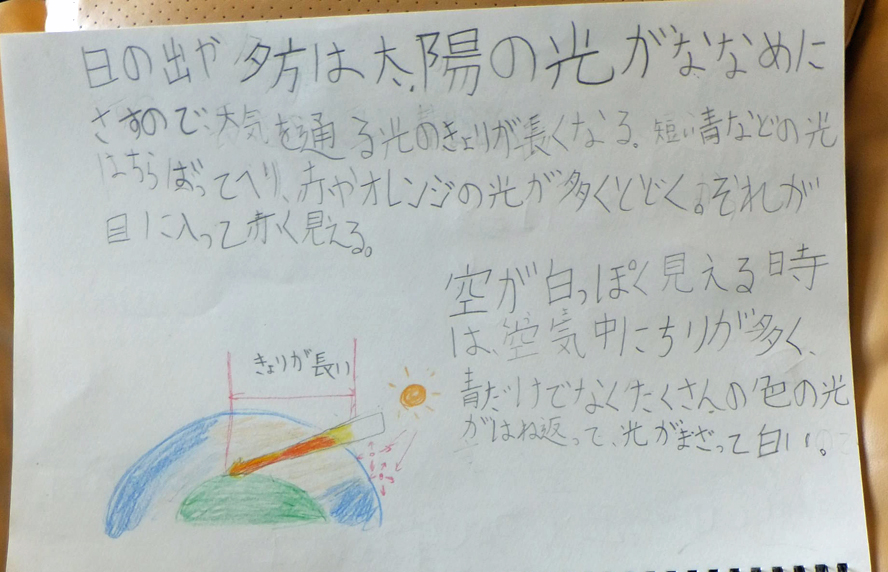 日の出や夕方は太陽の光がななめに
さすので、大気を通る光のきょりが長くなる。短い青などの光
はちらばってへり、赤やオレンジの光が多くとどく。それが
目に入って赤く見える。
空が白っぽく見える時
は、空気中にちりが多く、
青だけでなくたくさんの色の光
がはね返って、光がまざって白い。
きょりが長い